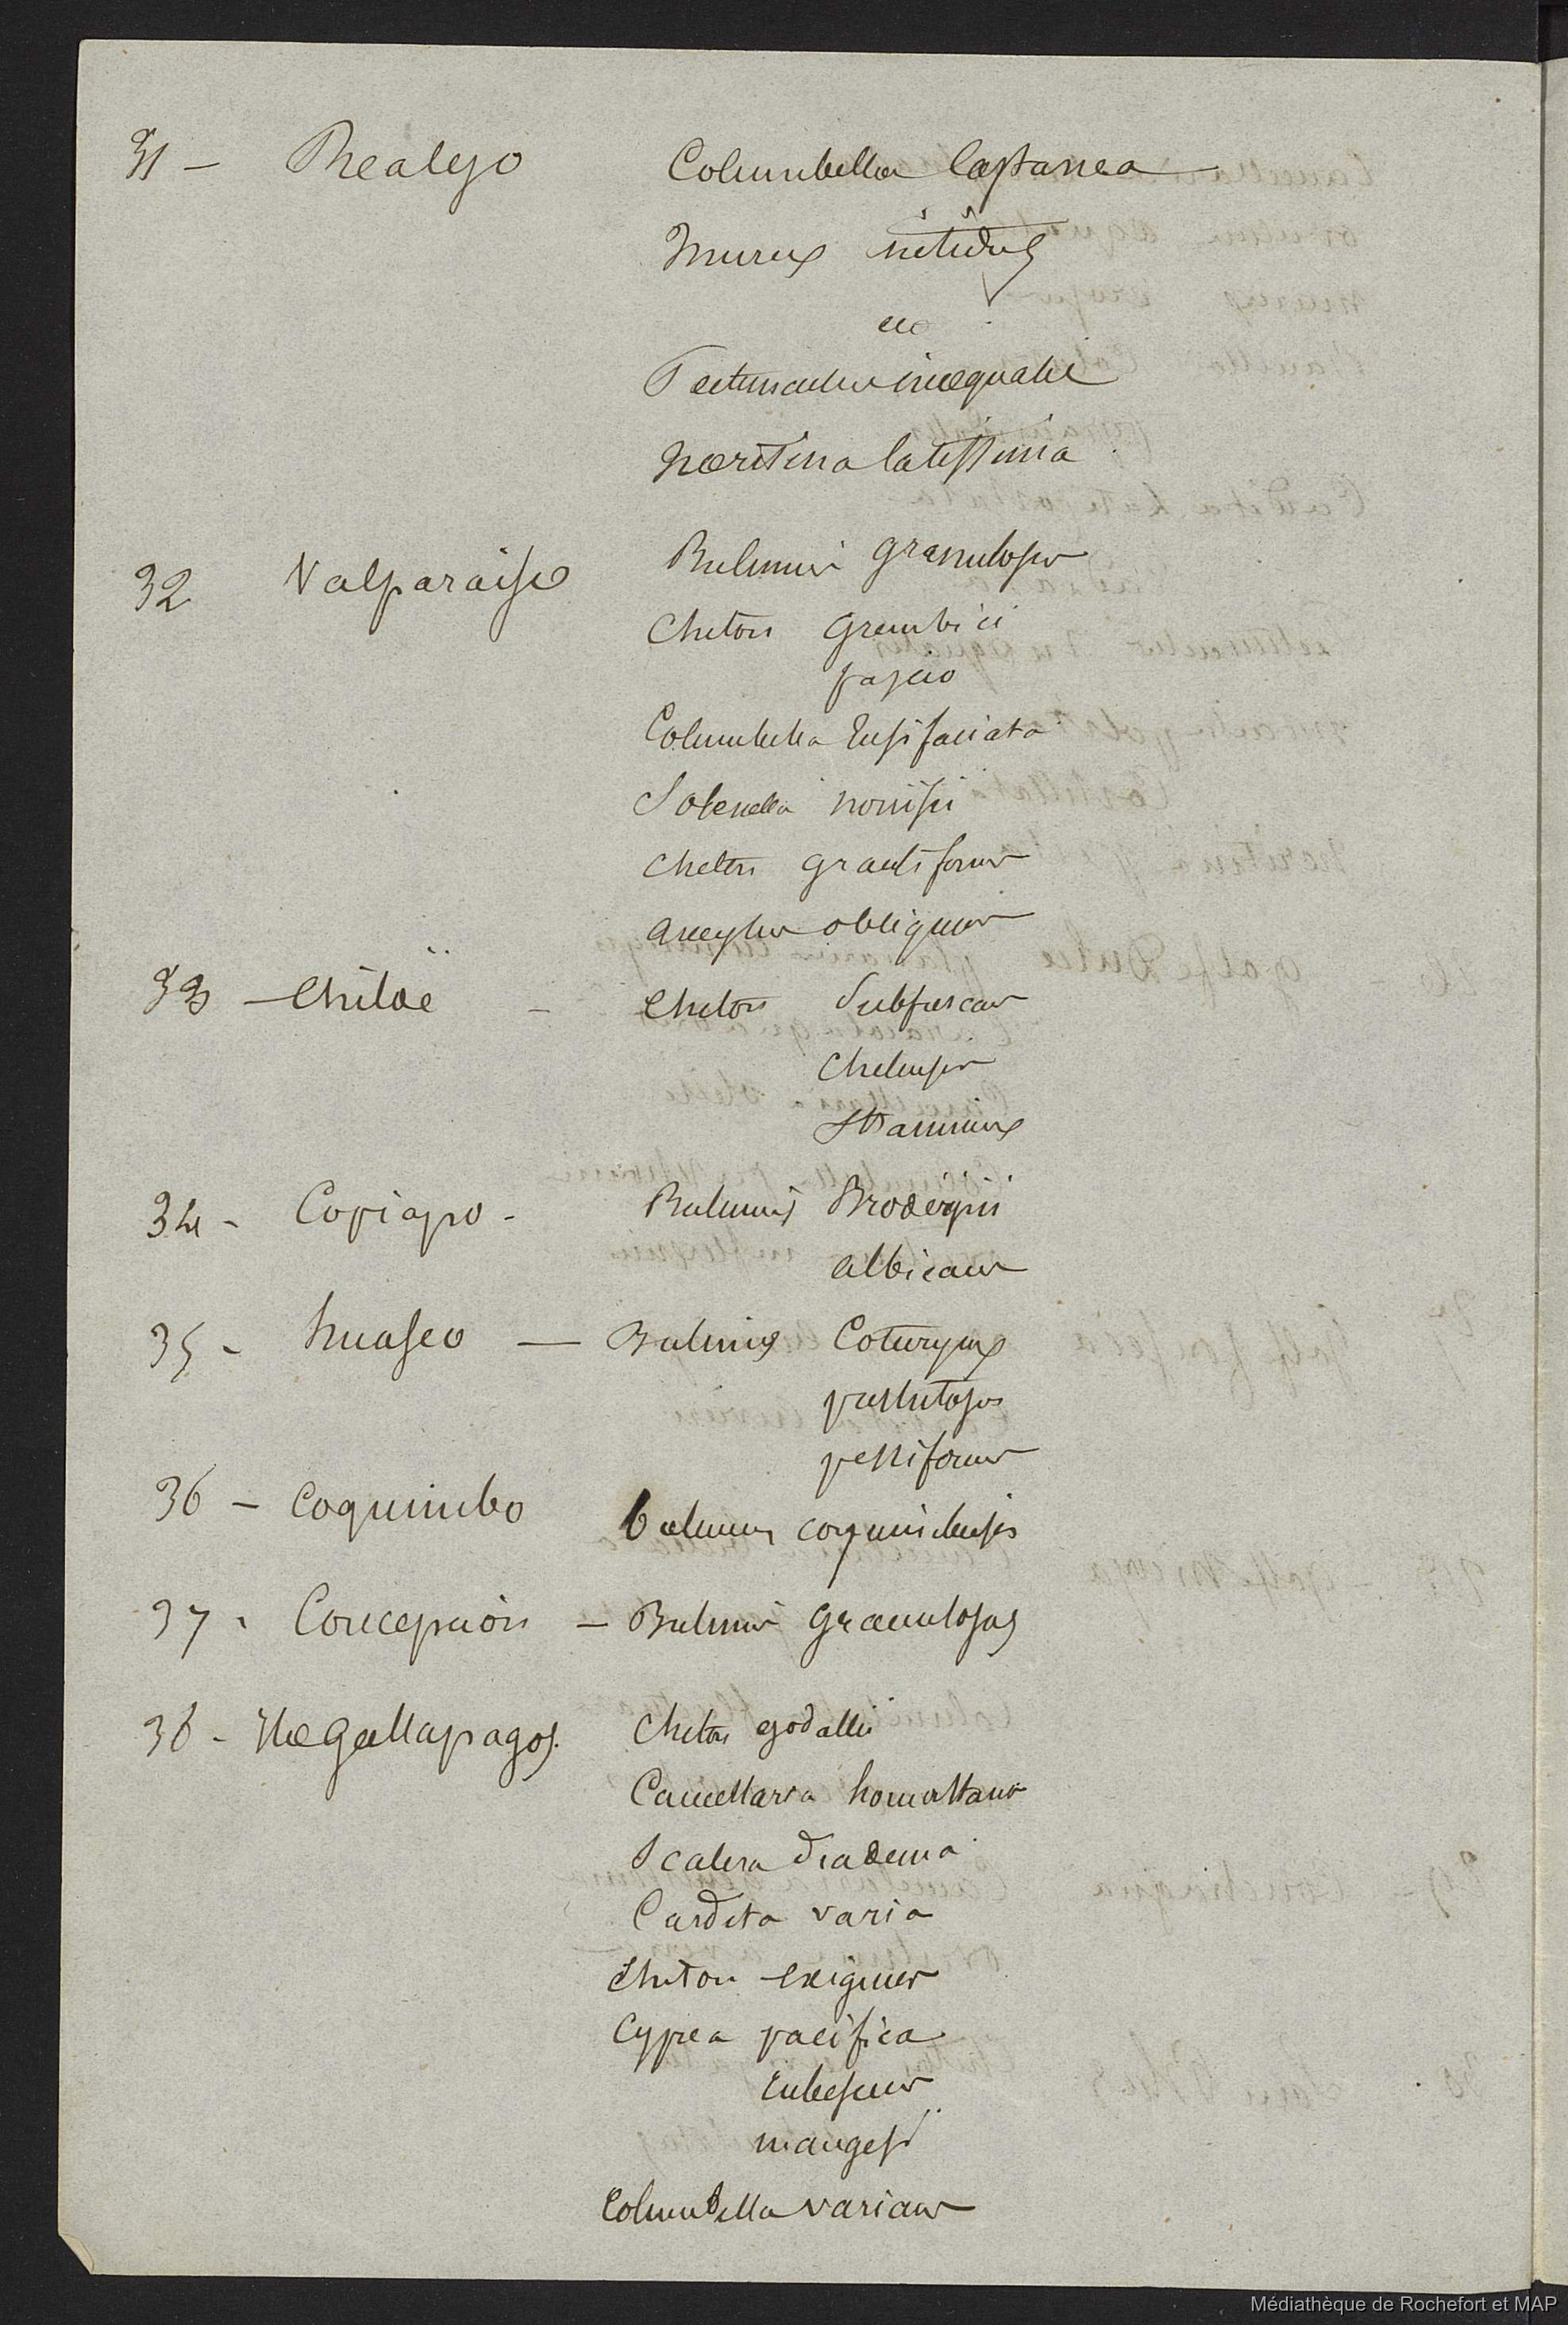 31 — Realejo Columbella Castanea
Murex nitidus
Pectunculus inaequalis
Neritina latissima
32 Valparaiso Bulimus granulosus
Chiton Grembici
Columbella
Solenella norrisii
Chiton
Ancylus obliquus
33 — Chiloë — Chiton Subfuscus
Chilensis
Stramineus
34 - Copiapo - Bulimus Broderipii
albicans
35 - huasco — Bulimus Coturnyx
pustulosus
36 — Coquimbo bulimus coquimbensis
37 - Concepcion — Bulimus granulosus
38 - Ile Gallapagos. Chiton godallii
Cancellaria
Scalaria diadema
Cardita varia
Chiton exiguus
Cyprea pacifica
rubescens
maugesii
Columbella varians
Médiathèque de Rochefort et MAP